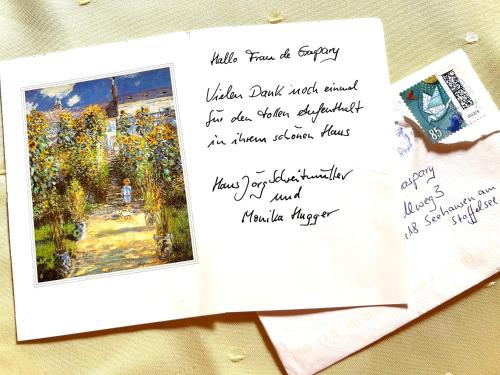 Hallo Frau de Gaspary
Vielen Dank noch einmal
für den tollen Aufenthalt
in ihrem schönen Haus
Hans Jörg Schreitmüller
und
Monika Hugger
85
aspary
llweg 3
18 Seehausen am
Staffelsee